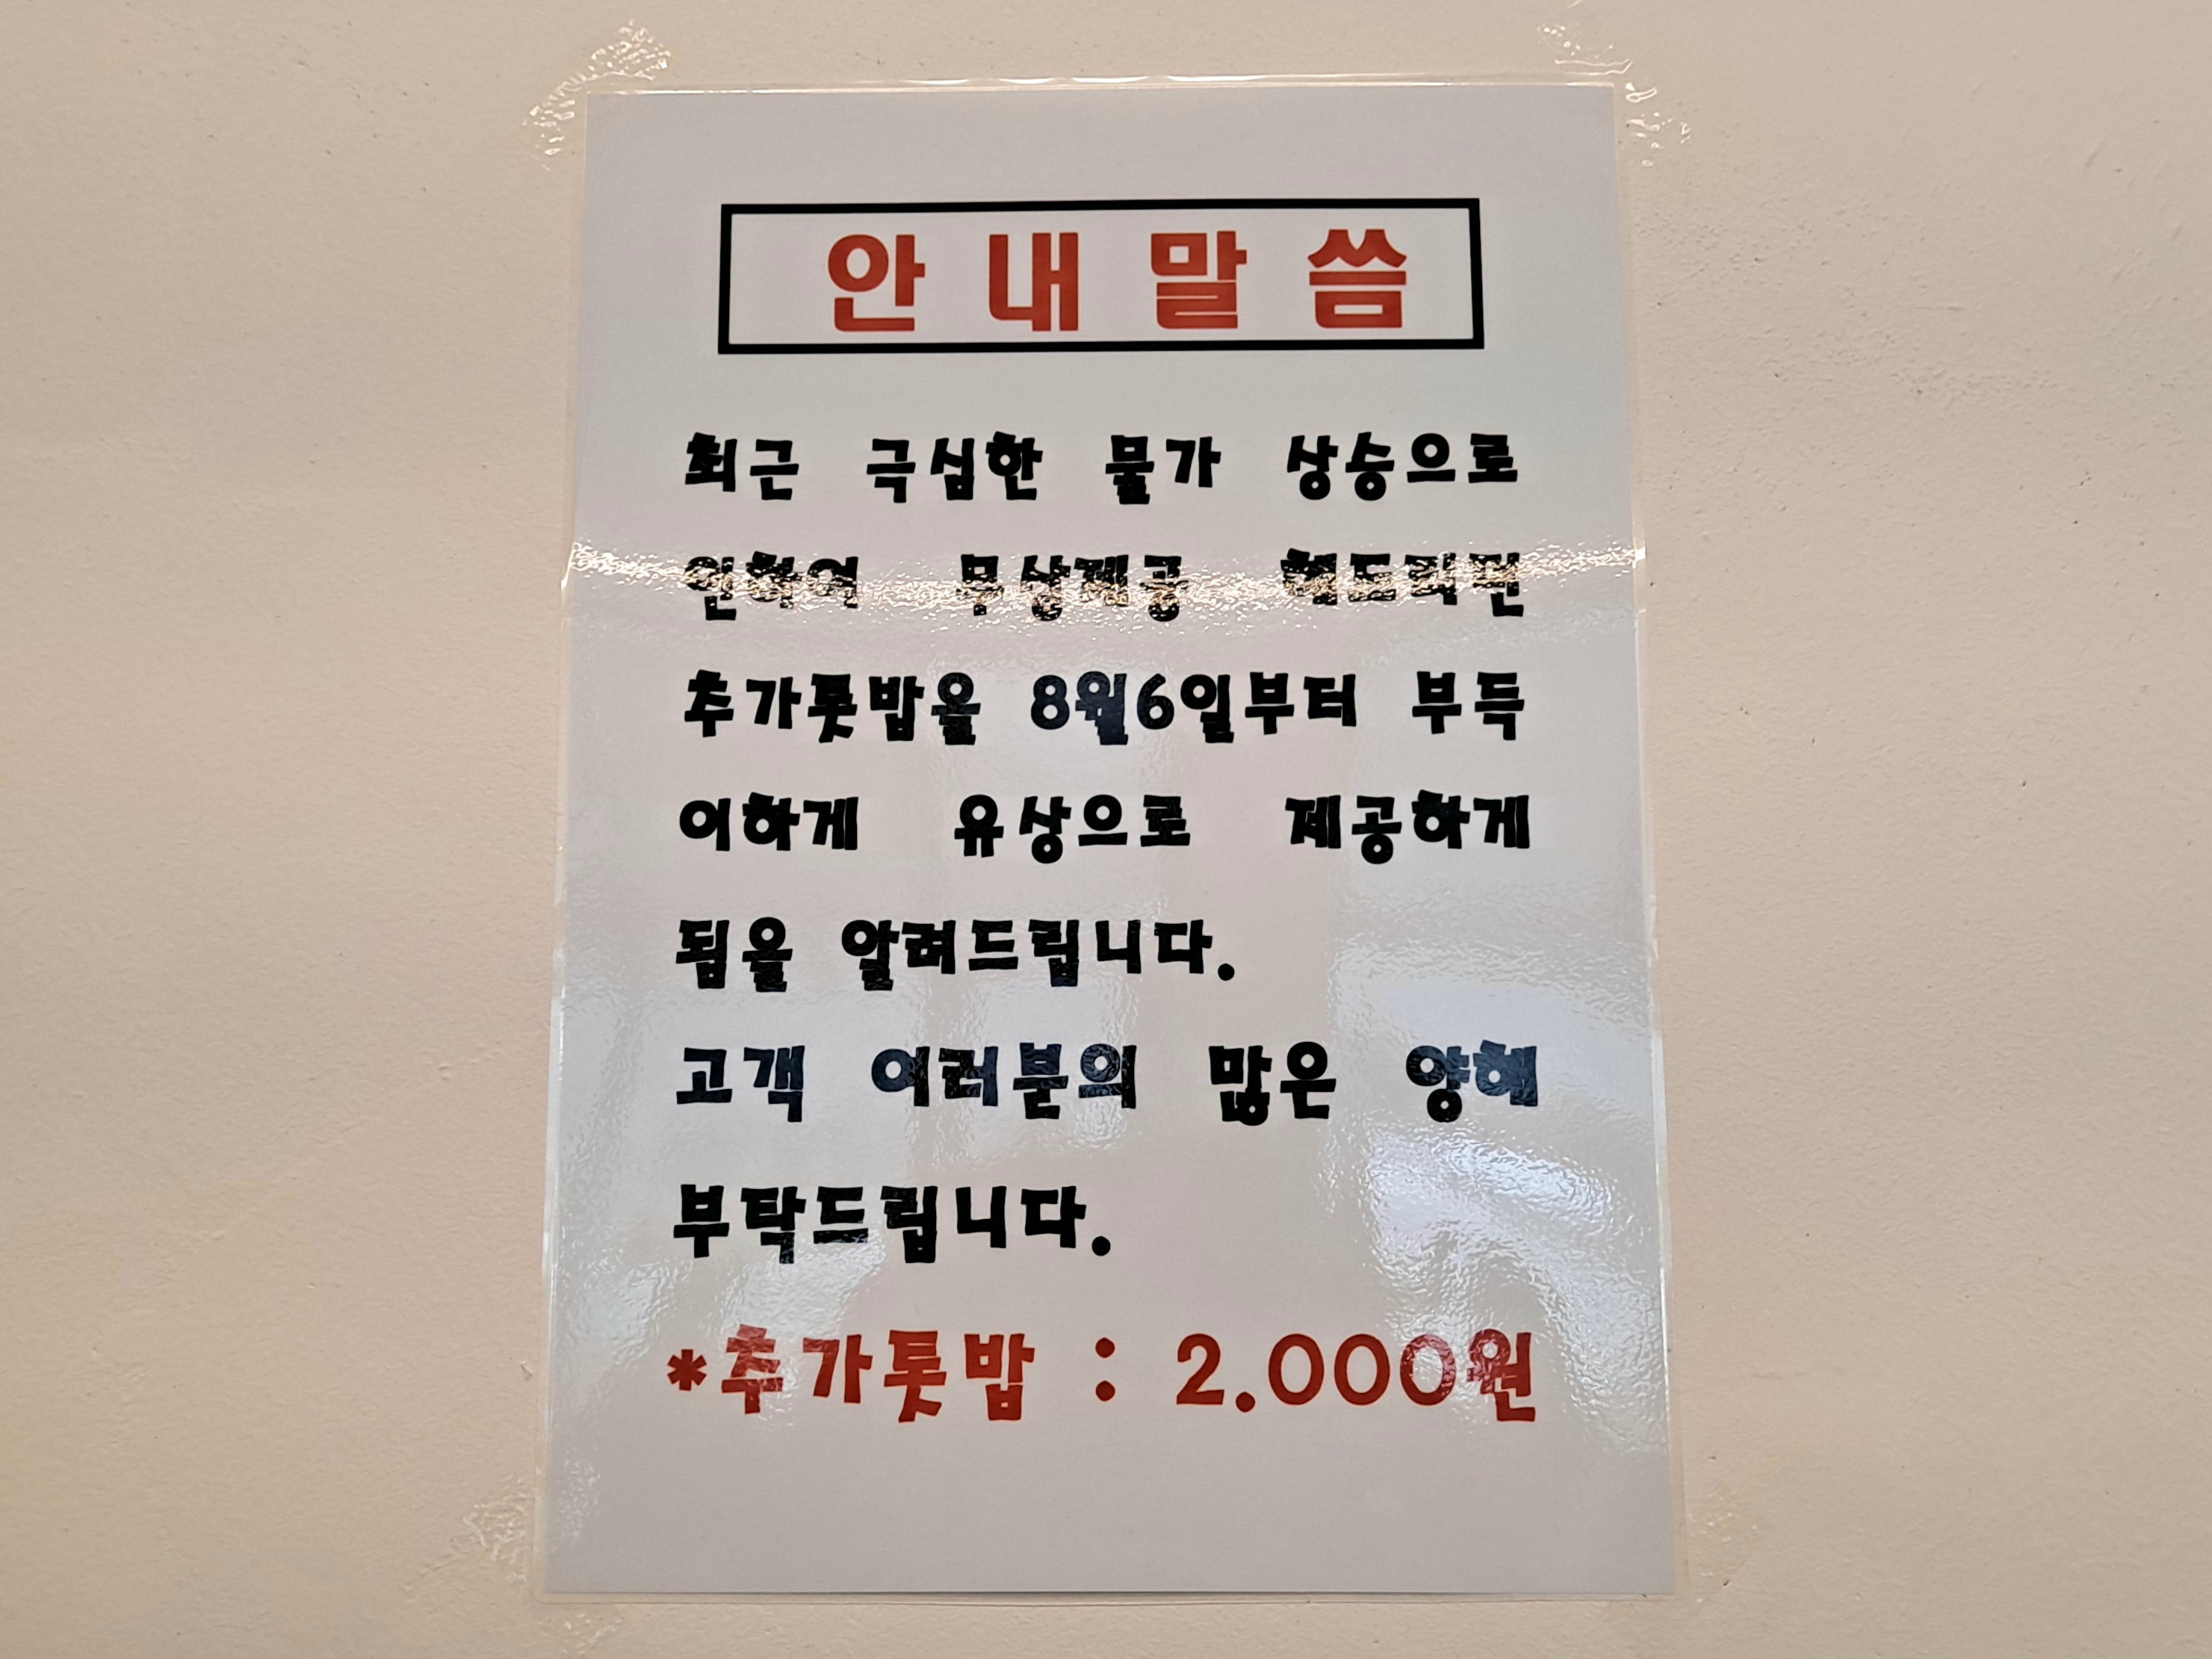 안내말씀
최근 극심한 물가 상승으로
인하여 무상제공 해드리던
추가톳밥을 8월6일부터 부득
이하게 유상으로 제공하게
됨을 알려드립니다.
고객 여러분의 많은 양해
부탁드립니다.
*추가톳밥 : 2.000원